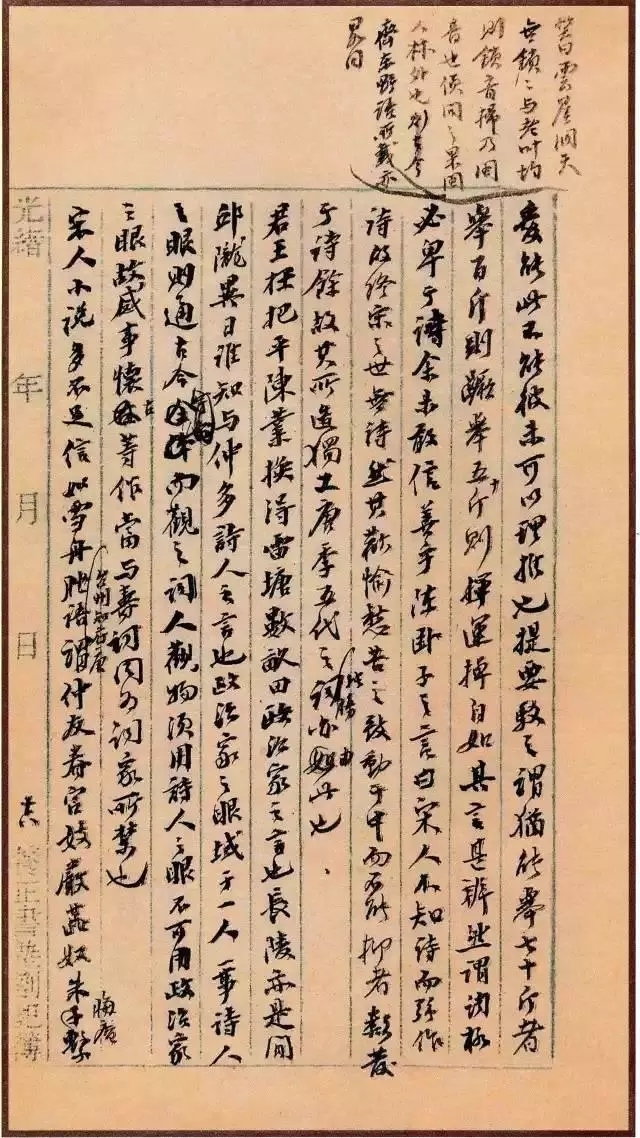 笑曰雲崖洞天
無鎖=与老叶均
則鎖音掃乃閩
音也偵問之果閩
人林外也
齊東野語所載亦
畧同
能此不能彼未可以理推也提要駁之謂猶能舉七十斤者
舉百斤則蹶舉五十斤則運掉自如其言甚辨然謂詞格
必卑于詩余未敢信善乎陳卧子之言曰宋人不知詩而強作
詩故終宋之世無詩然其歡愉愁苦之致動于中而不能抑者類發
于詩餘故其所造獨工唐季五代之詞獨勝亦由此也
君王枉把平陳業換得雷塘數畝田政治家之言也長陵亦是閒
邱隴異日誰知与仲多詩人之言也政治家之眼域于一人一事詩人
之眼則通古今而觀之詞人觀物須用詩人之眼不可用政治家
之眼故感事懷古等作當与壽詞同為詞家所禁也
宋人小說多不足信如雪舟脞語謂台州知府唐仲友眷官妓嚴蕊奴朱晦庵繫
光緒 年 月 日 養正書塾劄記簿